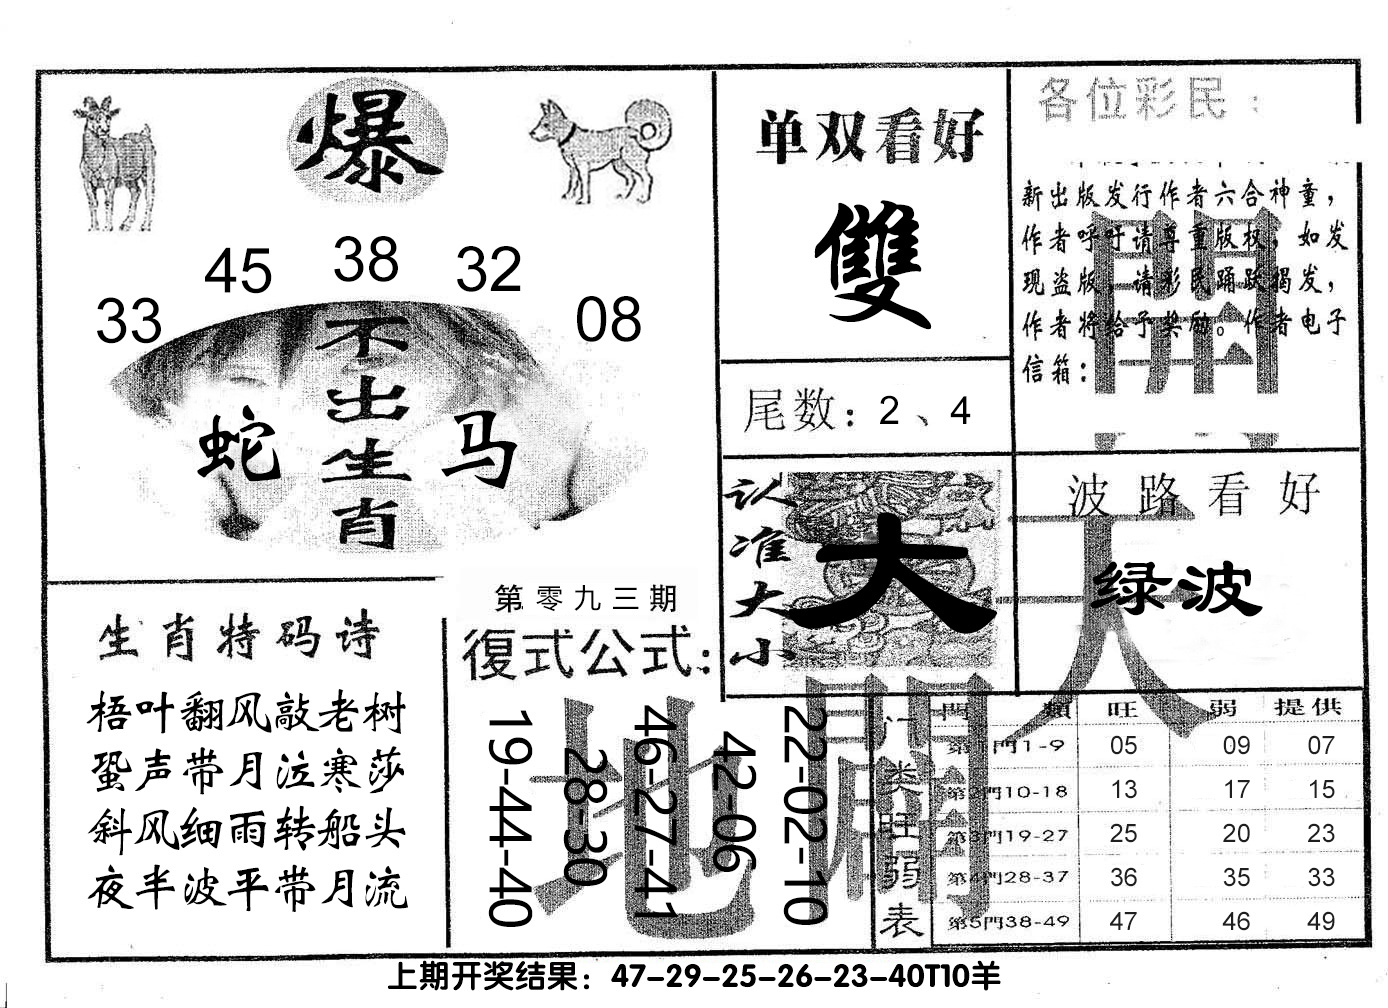 爆
45 38 32
33 08
不出生肖
蛇 马
单双看好
雙
尾数：2、4
各位彩民：
新出版发行作者六合神童，
作者呼吁请尊重版权，如发
现盗版，请彩民踊跃揭发，
作者将给予奖励。作者电子
信箱：
認准大小
大
波路看好
绿波
天地
開
生肖特码诗
梧叶翻风敲老树
蛩声带月泣寒莎
斜风细雨转船头
夜半波平带月流
第零九三期
復式公式：
19-44-40
28-30
46-27-41
42-06
22-02-10
门类旺弱表
門類 旺 弱 提供
第1門1-9 05 09 07
第2門10-18 13 17 15
第3門19-27 25 20 23
第4門28-37 36 35 33
第5門38-49 47 46 49
上期开奖结果：47-29-25-26-23-40T10羊